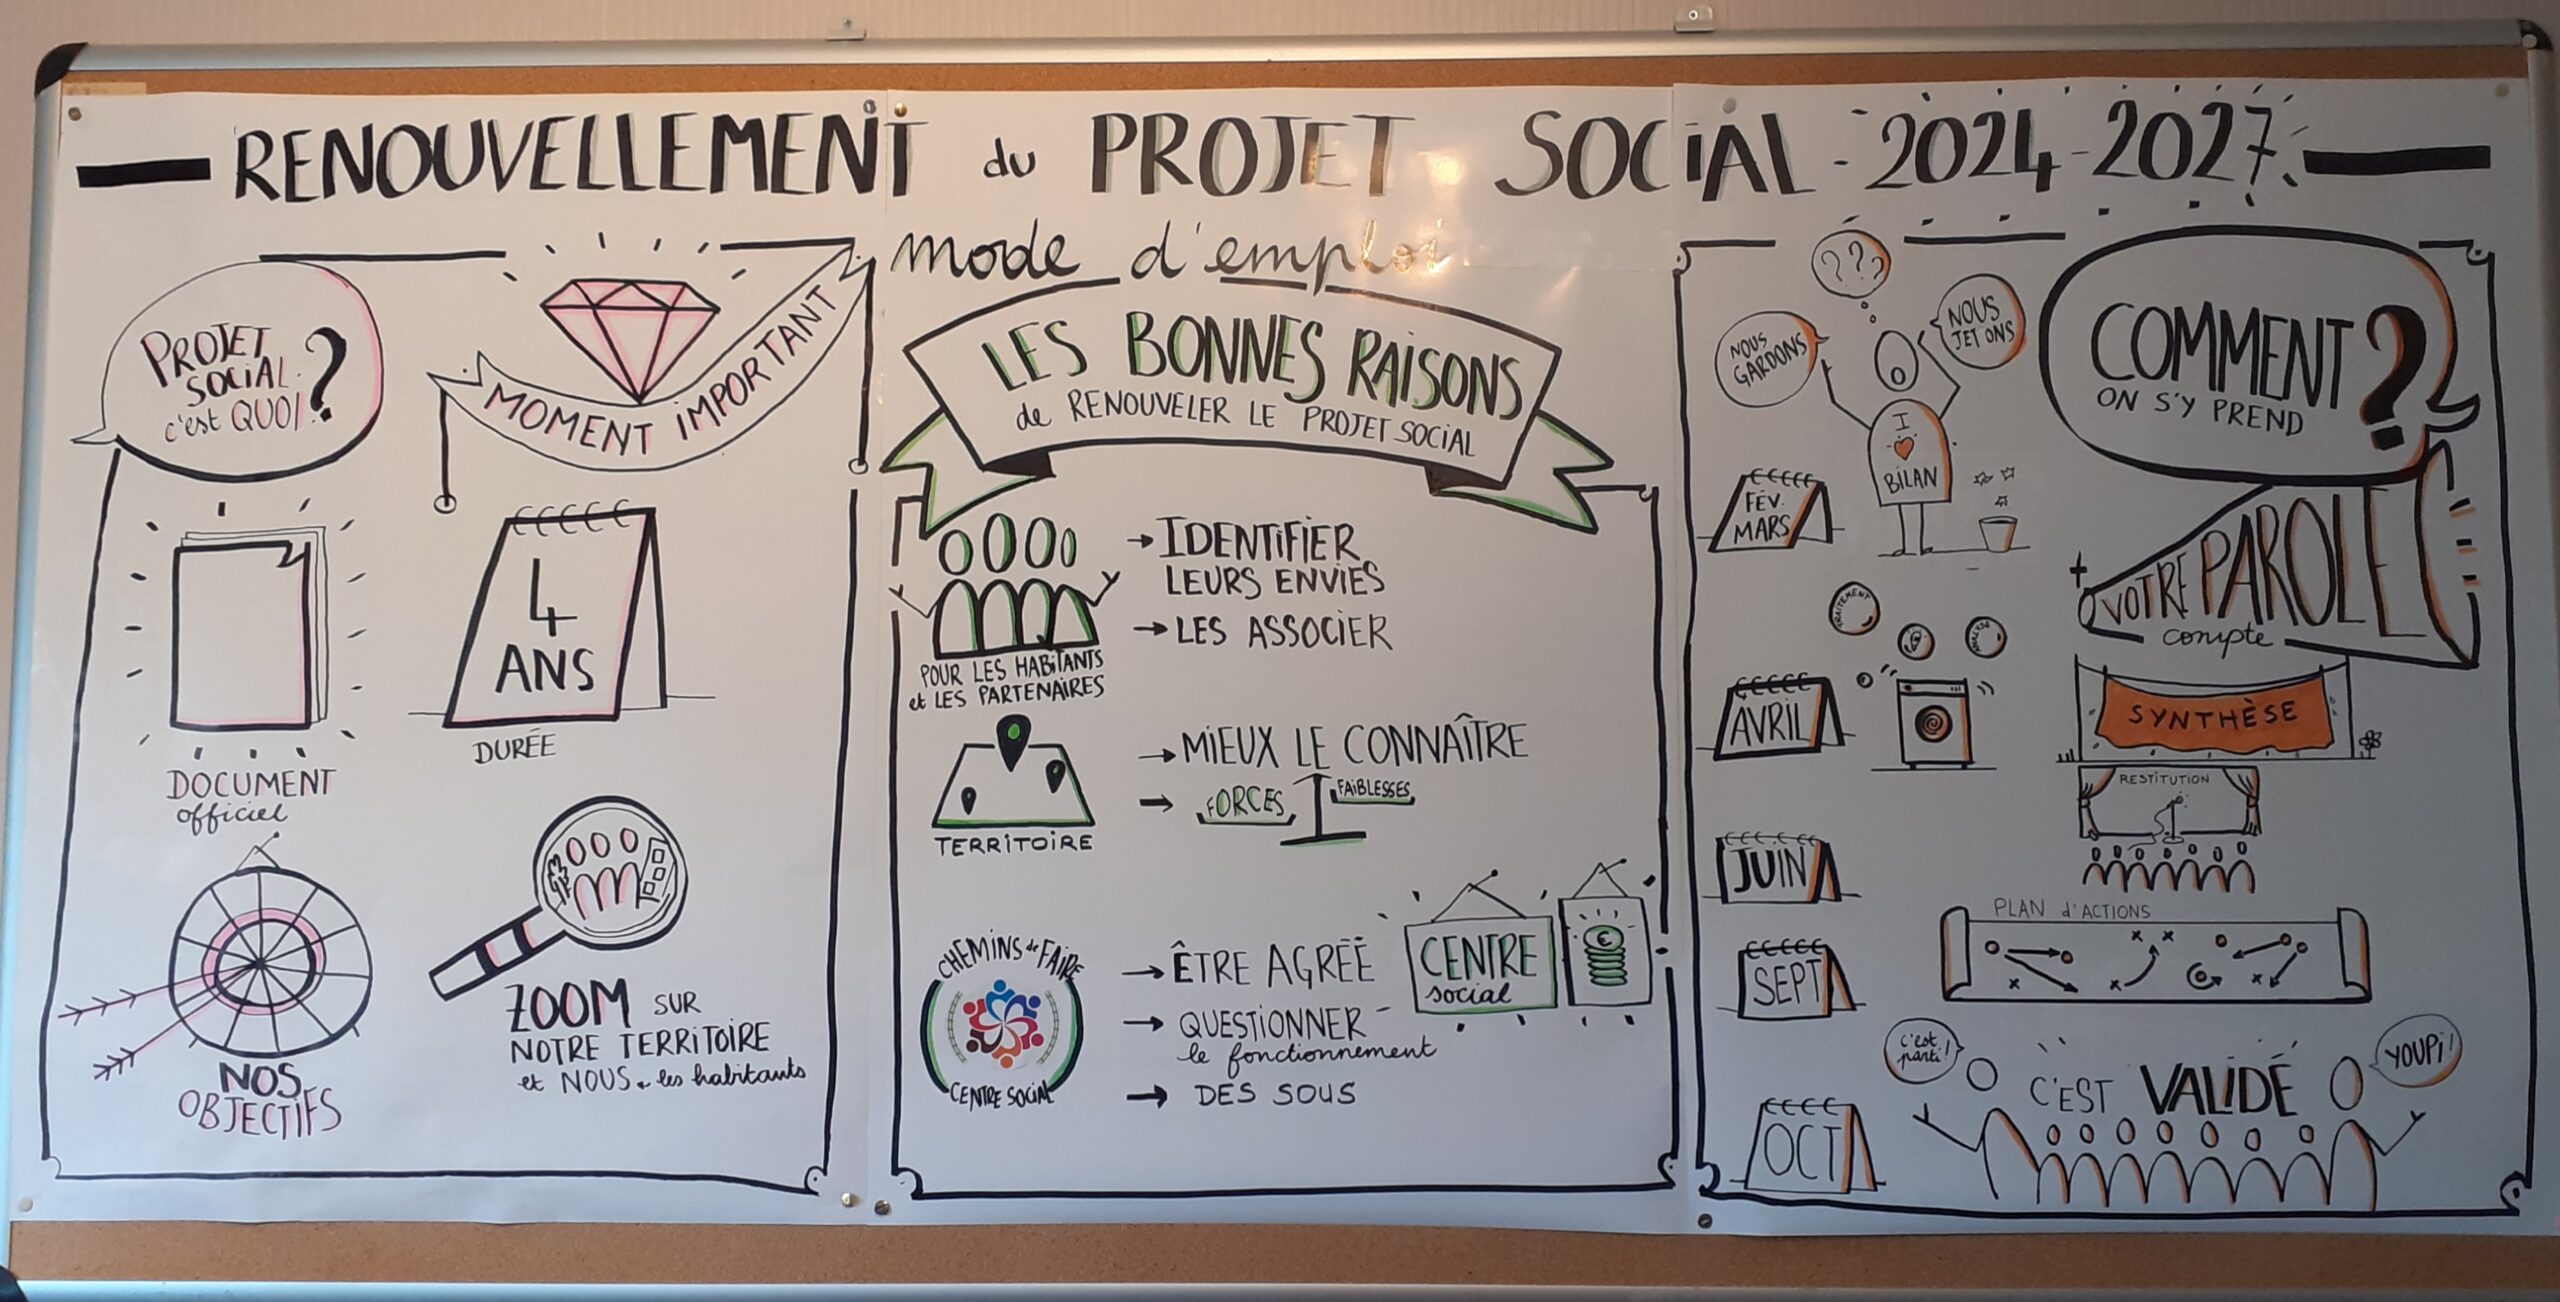 RENOUVELLEMENT du PROJET SOCIAL - 2024-2027
mode d'emploi
PROJET
SOCIAL
c'est QUOI ?
MOMENT IMPORTANT
DOCUMENT
officiel
4
ANS
DURÉE
NOS
OBJECTIFS
ZOOM SUR
NOTRE TERRITOIRE
et NOUS + les habitants
LES BONNES RAISONS
de RENOUVELER LE PROJET SOCIAL
POUR LES HABITANTS
et LES PARTENAIRES
→ IDENTIFIER
LEURS ENVIES
→ LES ASSOCIER
TERRITOIRE
→ MIEUX LE CONNAÎTRE
→ FORCES FAIBLESSES
CHEMINS de FAIRE
CENTRE SOCIAL
→ ÊTRE AGRÉÉ
CENTRE
social
€
→ QUESTIONNER
le fonctionnement
→ DES SOUS
COMMENT ?
ON S'Y PREND
???
NOUS
GARDONS
NOUS
JETONS
I
BILAN
FÉV.
MARS
+ VOTRE PAROLE
compte
TRAITEMENT
AVRIL
SYNTHÈSE
RESTITUTION
JUIN
PLAN d'ACTIONS
SEPT
c'est
parti!
C'EST VALIDÉ
YOUPI!
OCT